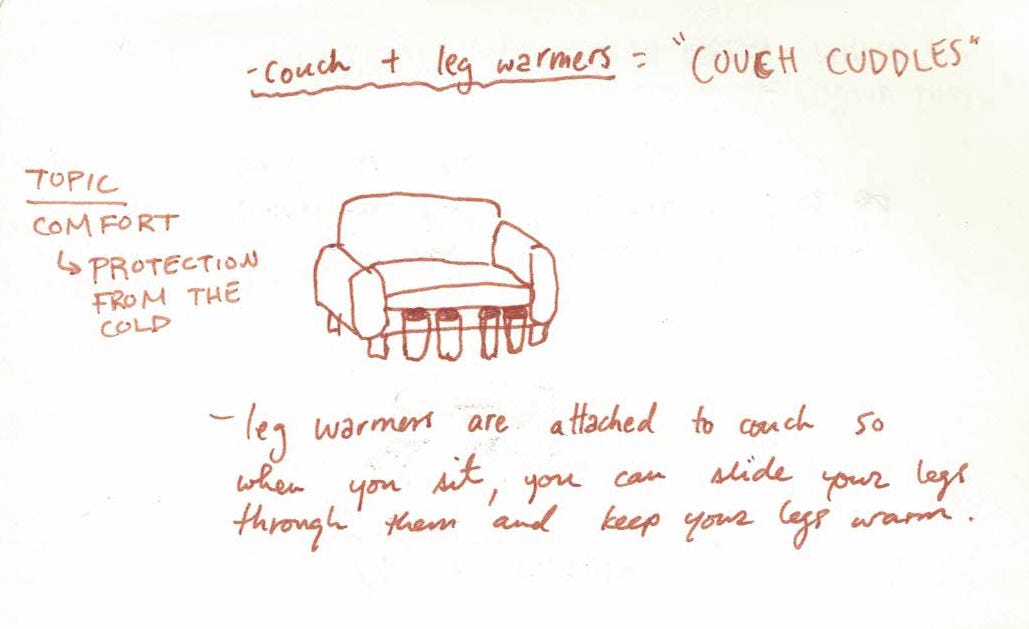 - couch + leg warmers = "COUCH CUDDLES"
TOPIC
COMFORT
↳ PROTECTION
FROM THE
COLD
- leg warmers are attached to couch so
when you sit, you can slide your legs
through them and keep your legs warm.